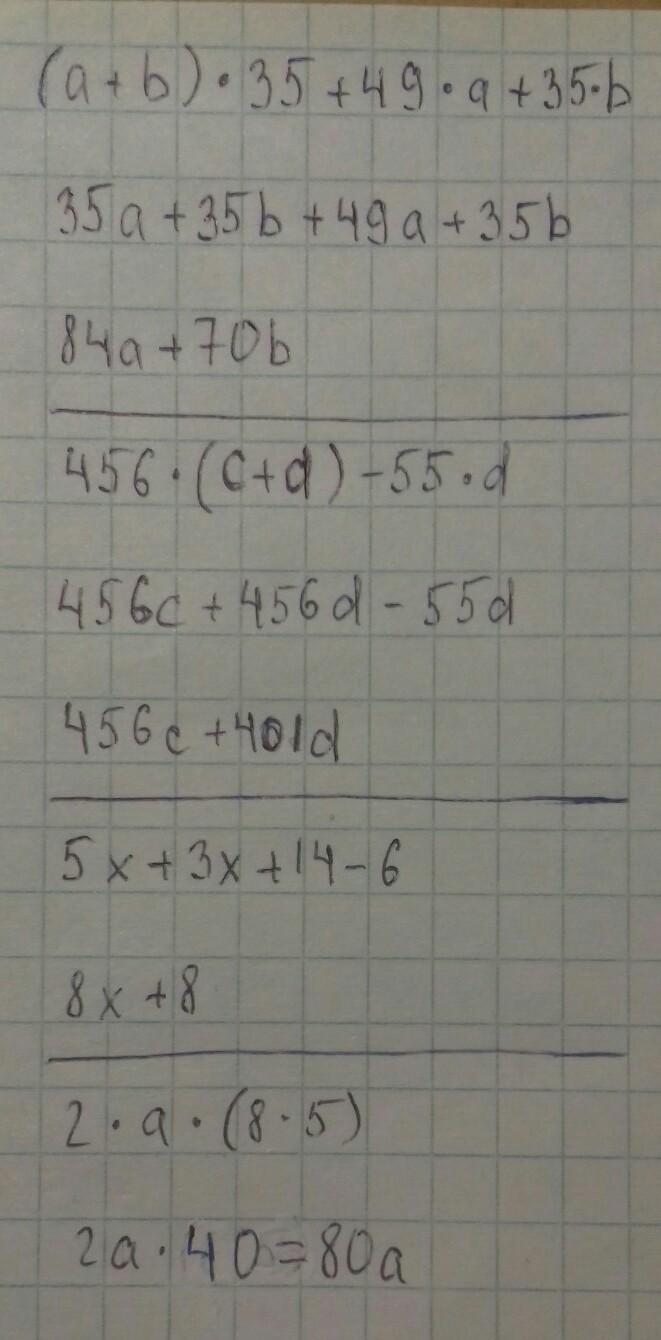 (a+b)·35+49·a+35·b
35a+35b+49a+35b
84a+70b
456·(c+d)-55·d
456c+456d-55d
456c+401d
5x+3x+14-6
8x+8
2·a·(8·5)
2a·40=80a